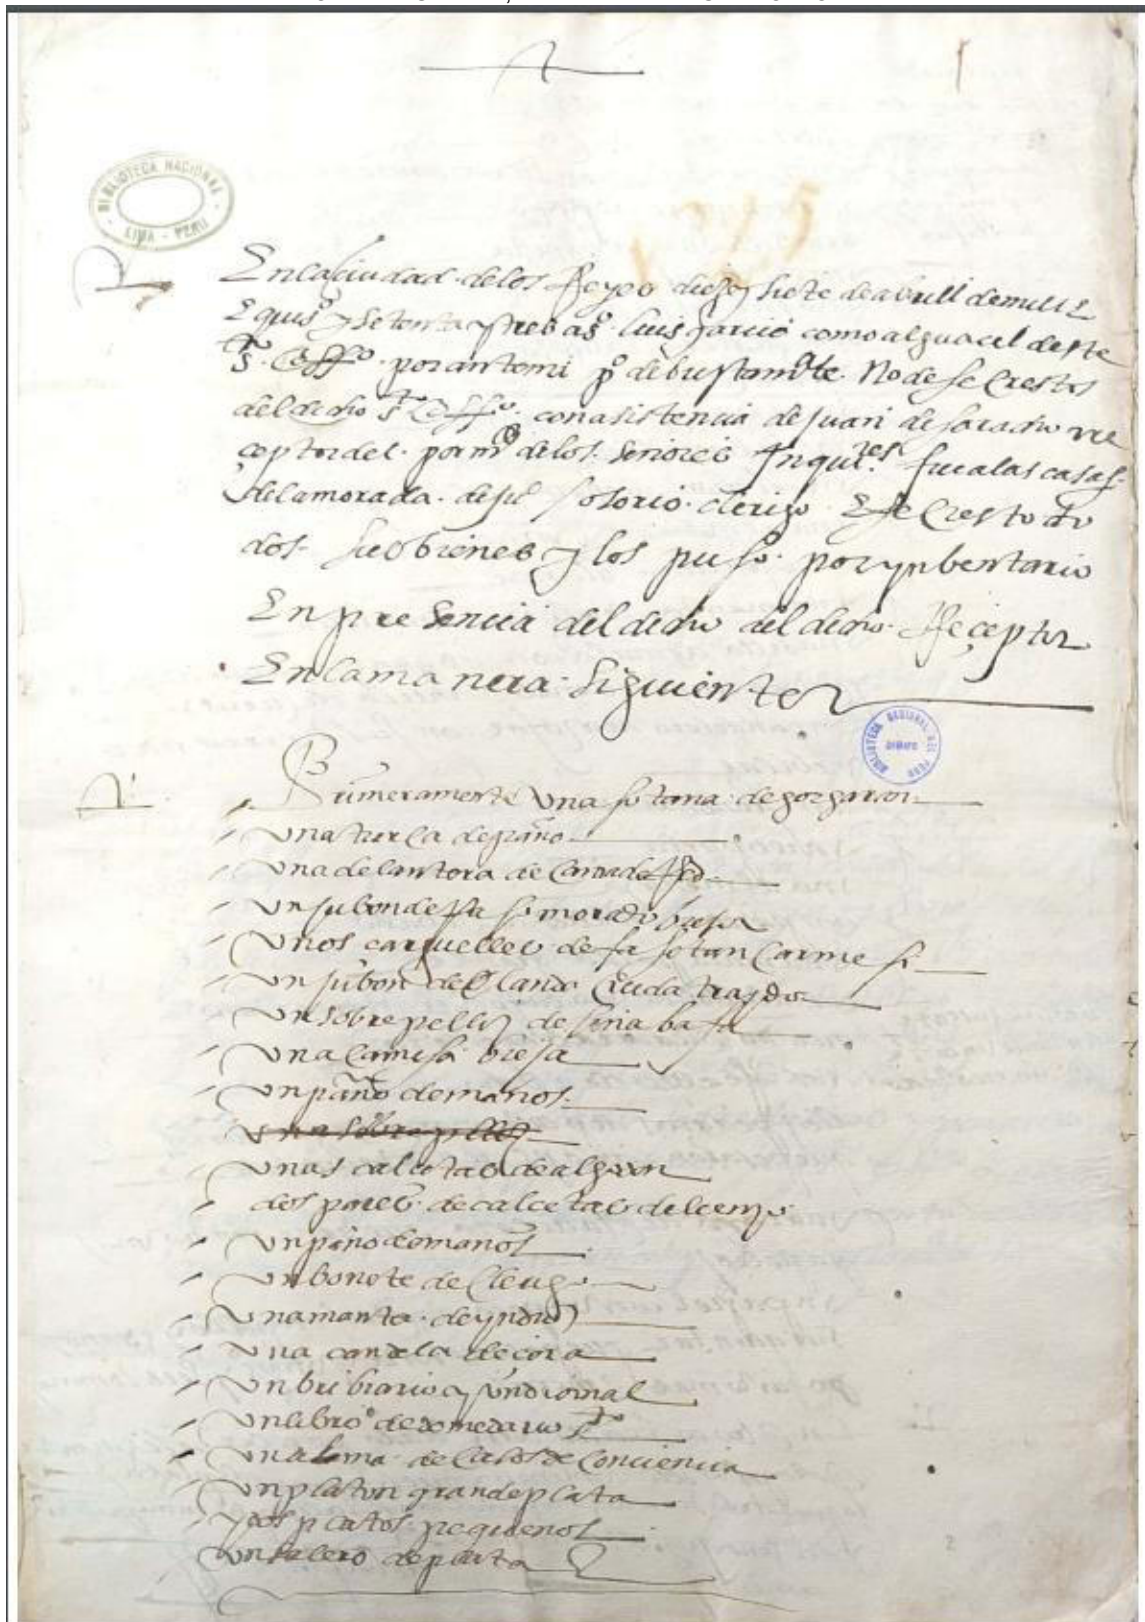 BIBLIOTECA NACIONAL
LIMA - PERU
En la ciudad de los Reyes diez y siete de abrill de mill E
E quiso y setenta y tres as luis garcia como alguacel deste
so offo por ante mi po de bustamte No de secrestos
del dicho so offo con asistencia de juan de saracho re
ceptor del por mdo de los señores Inquires fue a las casas
de la morada de ju osorio clerigo E secresto to
dos sus bienes y los puso por ynbentario
En presencia del dicho del dicho Receptor
En la manera siguiente
BIBLIOTECA NACIONAL DEL PERU
Primeramente Una sotana de gorgaran
Una turca de paño
Una delantera de cama de Red
Un jubon de ra so morado biejo
Unos carquelles de ta fetan Carmesi
Un jubon de olanda Cruda traydo
Un sobrepelliz de
Una Camisa bieja
Un paño de manos
Una sobrepelliz
Unas calcetas de algodon
dos pares de calcetas de lienzo
Un paño de manos
Un bonete de Clerigo
Una manta de yndio
Una candela de cera
Un bribiario y un diornal
Un libro de
Una suma de Casos de Conciencia
Un platon grande plata
y dos platos pequenos
Un salero de plata